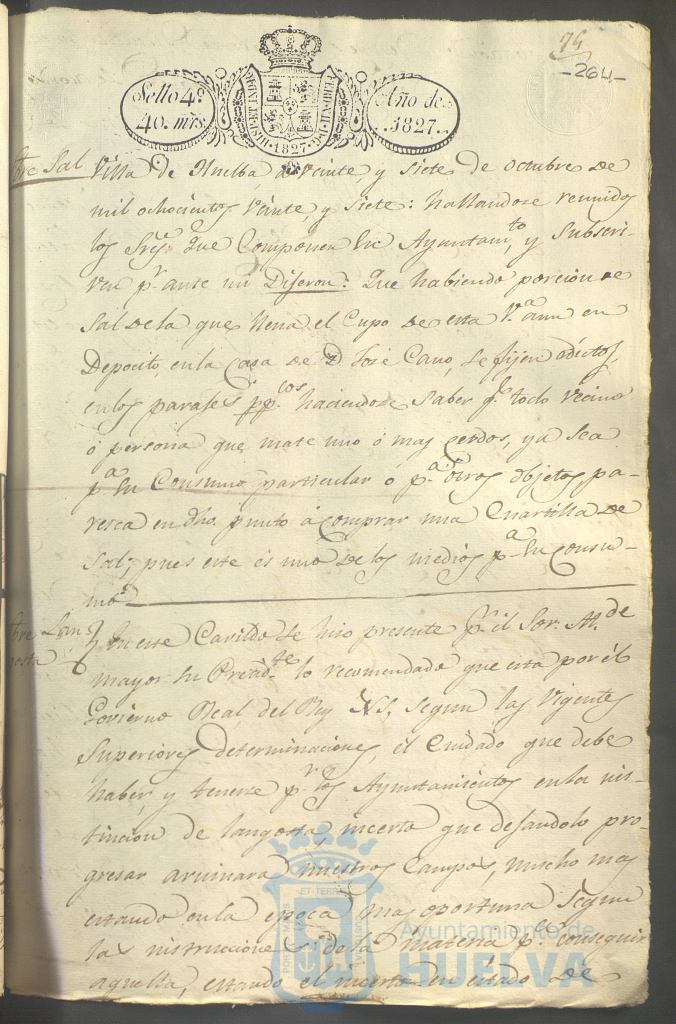 74
-264-
Sello 4º
40. mrs
HISP. 1827.
Año de
1827.
bre Sal
Villa de Huelba, a veinte, y siete de octubre de
mil ochocientos veinte, y siete: hallandose reunidos
los Sres. que componen su Ayuntamto, y subscri-
ven pr. ante mi Digeron: Que habiendo porcion de
Sal de la que llena el Cupo de esta Va. aun en
Deposito, en la Casa de Dn Jose Cano, se fijen edictos,
en los parages ppcos. haciendose saber qe. todo vecino
ó persona que mate uno ó mas cerdos, ya sea
pa. su Consumo particular ó pa. otros objetos pa-
resca en dho. punto á comprar una Cuartilla de
Sal, pues este es uno de los medios pa. su consu-
mo.
bre Lan-
gosta
En este Cavildo se hiso presente pr. el Sor. Alde
mayor su Presidte lo recomendado que esta por el
Govierno Real del Rey N.S. segun las vigentes
Superiores determinaciones, el cuidado que debe
haber, y tenerse pr. los Ayuntamientos en la ins-
tincion de langosta, incerto que dejandolo pro-
gresar aruinara nuestros Campos, mucho mas
estando en la epoca mas oportuna segun
las instrucciones de la materia pa. conseguir
aquella, estando el incerto en estado de
PORTUS MARIS ET TERRAE CUSTODIA
Ayuntamiento de
HUELVA